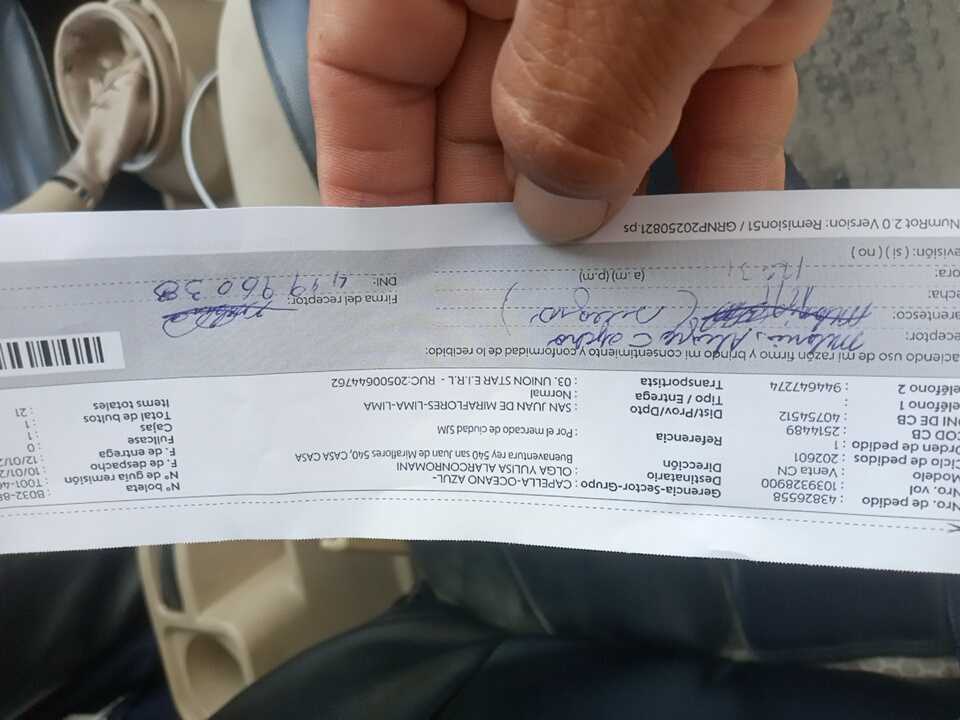 Nro. de pedido : 43826558 Gerencia-Sector-Grupo : CAPELLA-OCEANO AZUL- Nº boleta : B032-
Nro. vol : 1039328900 Destinatario : OLGA YULISA ALARCONROMANI Nº de guía remisión : T001-
Modelo : Venta CN Dirección Buenaventura rey 540 san Juan de Miraflores 540, CASA CASA F. de despacho : 10/01/
Ciclo de pedidos : 202601 F. de entrega : 12/01/
Orden de pedido : 1 Referencia : Por el mercado de ciudad SJM Fullcase : 0
COD CB : 2514489 Cajas : 1
DNI DE CB : 40754512 Dist/Prov/Dpto : SAN JUAN DE MIRAFLORES-LIMA-LIMA Total de bultos : 1
Teléfono 1 : Tipo / Entrega : Normal Items totales : 21
Teléfono 2 : 944647274 Transportista : 03. UNION STAR E.I.R.L. - RUC:20500644762
aciendo uso de mi razón firmo y brindo mi consentimiento y conformidad de lo recibido:
eceptor
arentesco: Firma del receptor:
echa: DNI: 44996038
ora: (a.m) (p.m)
evisión: ( si ) ( ) no )
NumRot 2.0 Version: Remision51 / GRNP20250821.ps